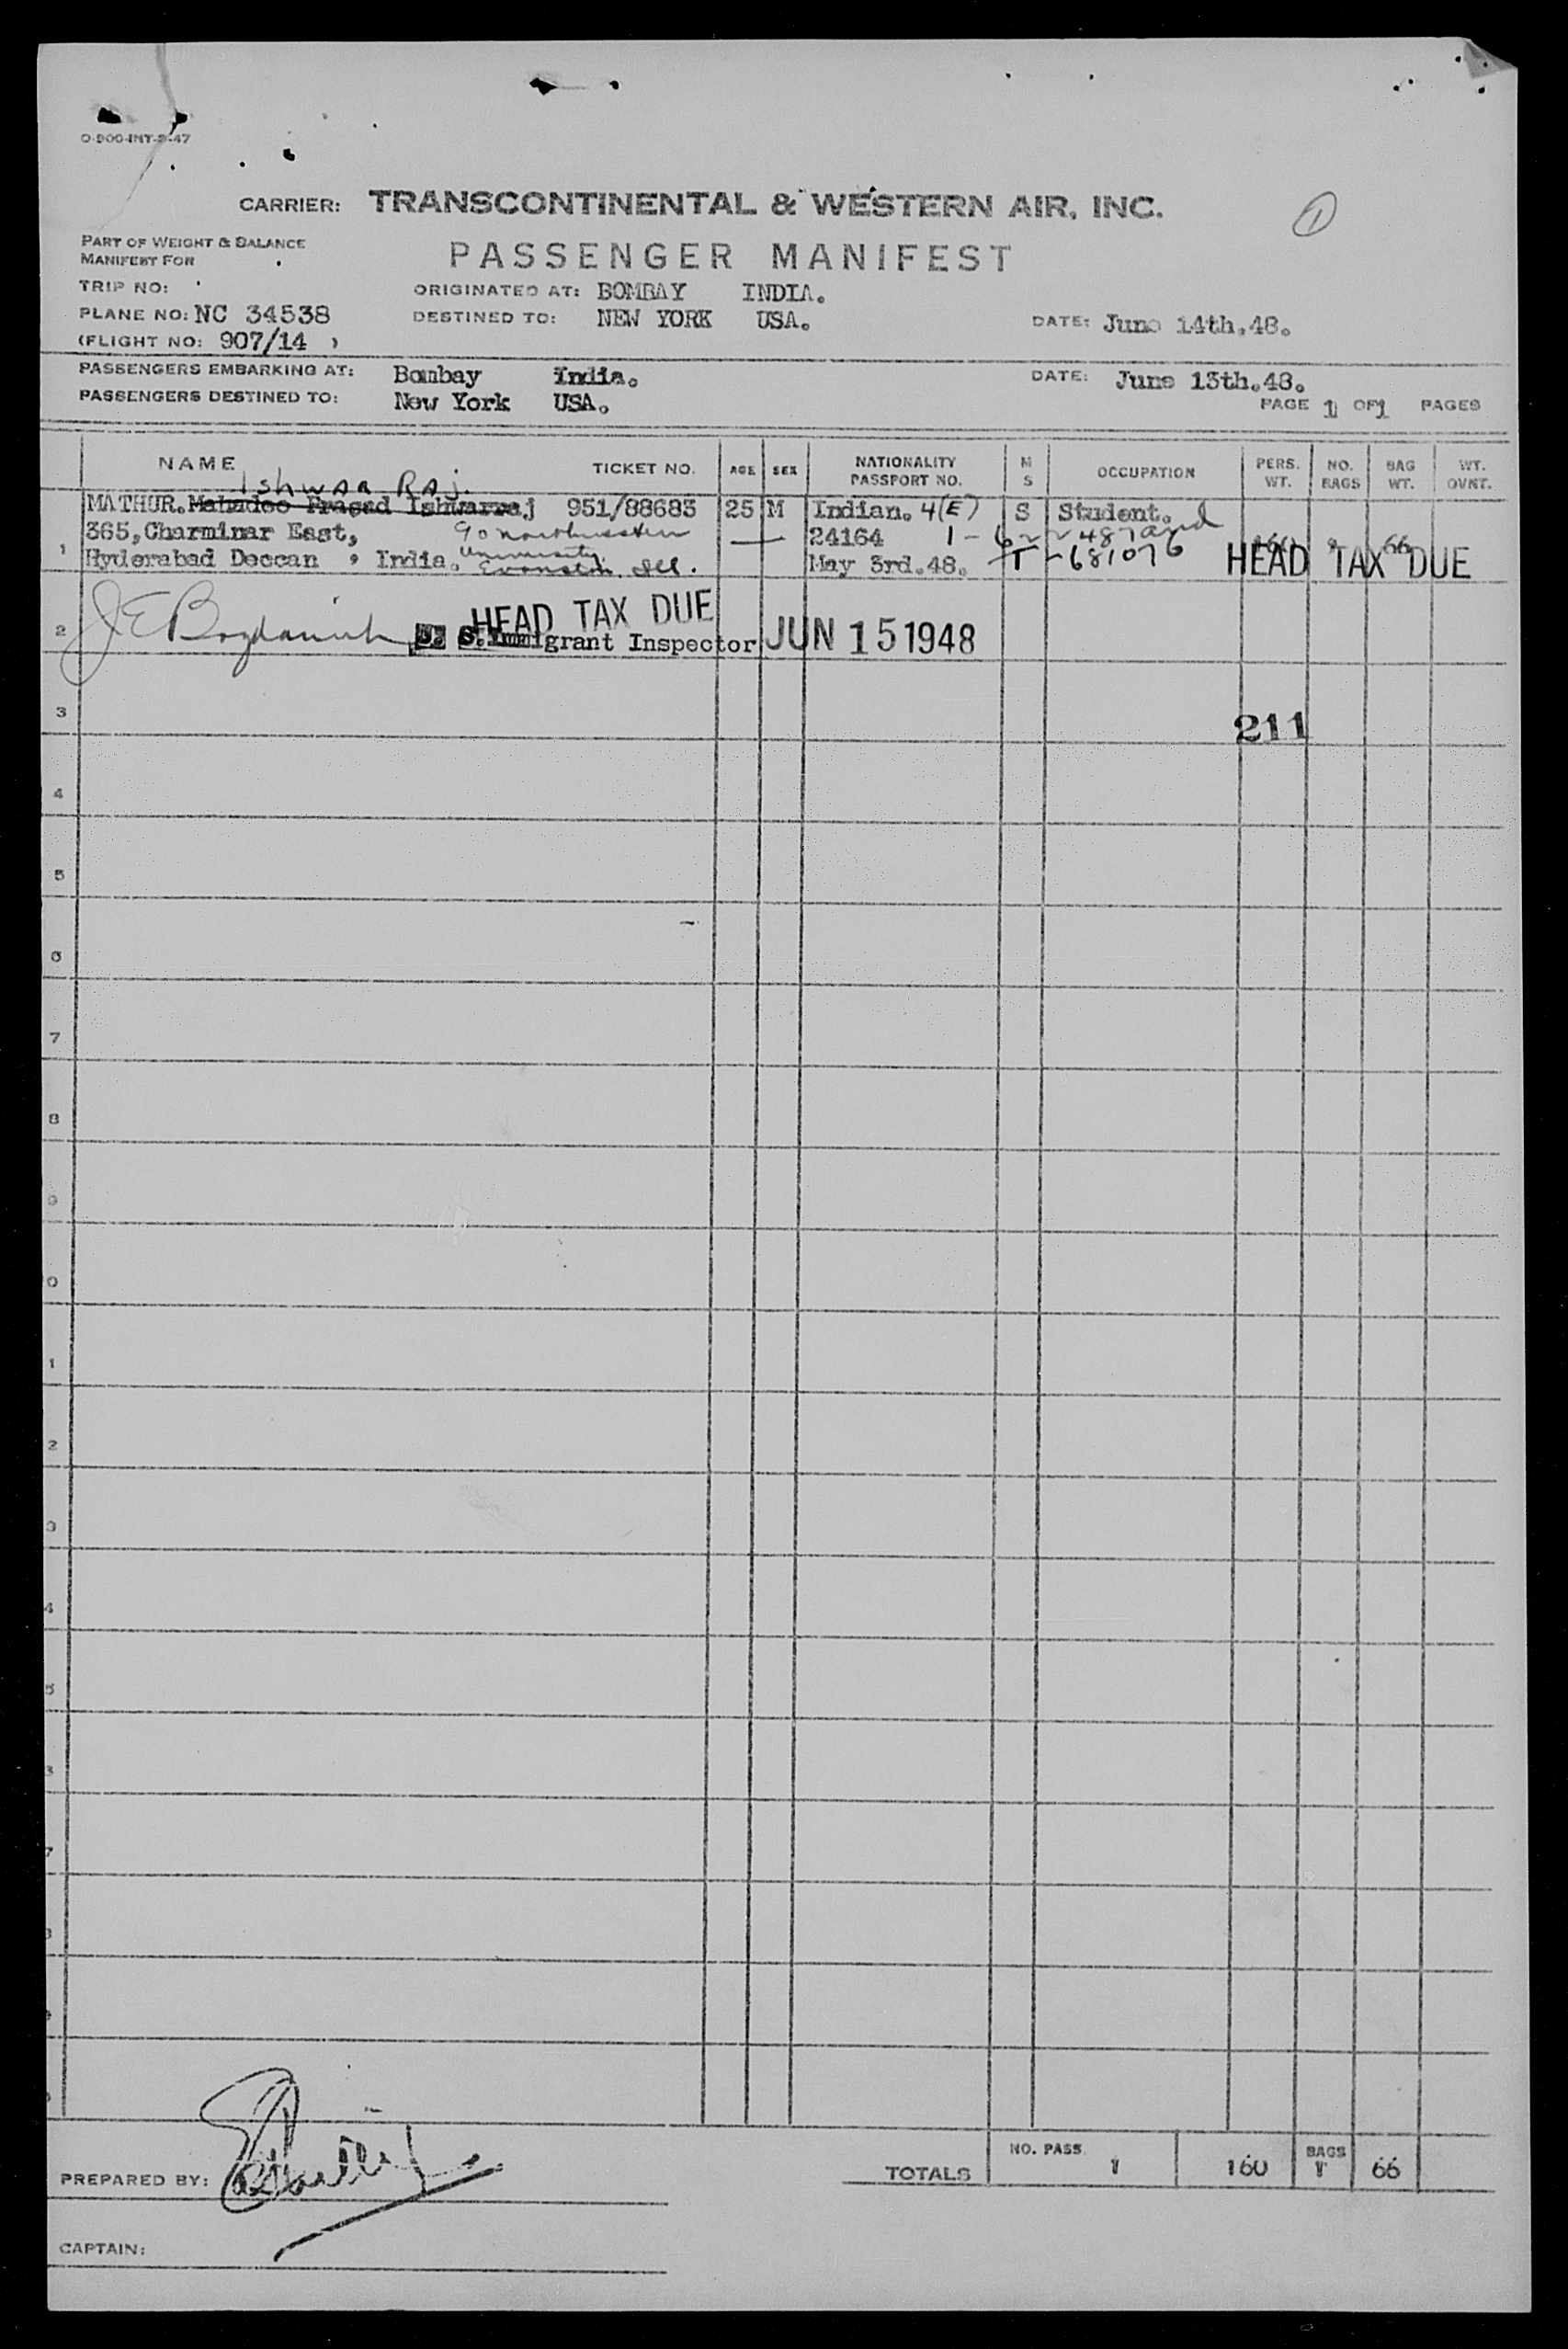 O-900-INT-9-47
CARRIER: TRANSCONTINENTAL & WESTERN AIR, INC.
1
PART OF WEIGHT & BALANCE
MANIFEST FOR
PASSENGER MANIFEST
TRIP NO:
ORIGINATED AT: BOMBAY INDIA.
PLANE NO: NC 34538
DESTINED TO: NEW YORK USA.
DATE: June 14th.48.
(FLIGHT NO: 907/14 )
PASSENGERS EMBARKING AT: Bombay India.
DATE: June 13th.48.
PASSENGERS DESTINED TO: New York USA.
PAGE 1 OF 1 PAGES
NAME TICKET NO. AGE SEX NATIONALITY PASSPORT NO. M S OCCUPATION PERS. WT. NO. BAGS BAG WT. WT. OVNT.
Ishwar Raj.
MATHUR. Mahadeo Prasad Ishwarraj 951/88683 25 M Indian. 4(E) S Student.
365, Charminar East, 90 Northwestern 24164
1 Hyderabad Deccan , India. University. Evanston, Ill. May 3rd.48. T-681076 160 66
HEAD TAX DUE
2 HEAD TAX DUE
U. S. Immigrant Inspector JUN 15 1948
3
211
4
5
6
7
8
9
0
1
2
3
4
5
7
PREPARED BY:
TOTALS NO. PASS. 1 160 BAGS 1 66
CAPTAIN: